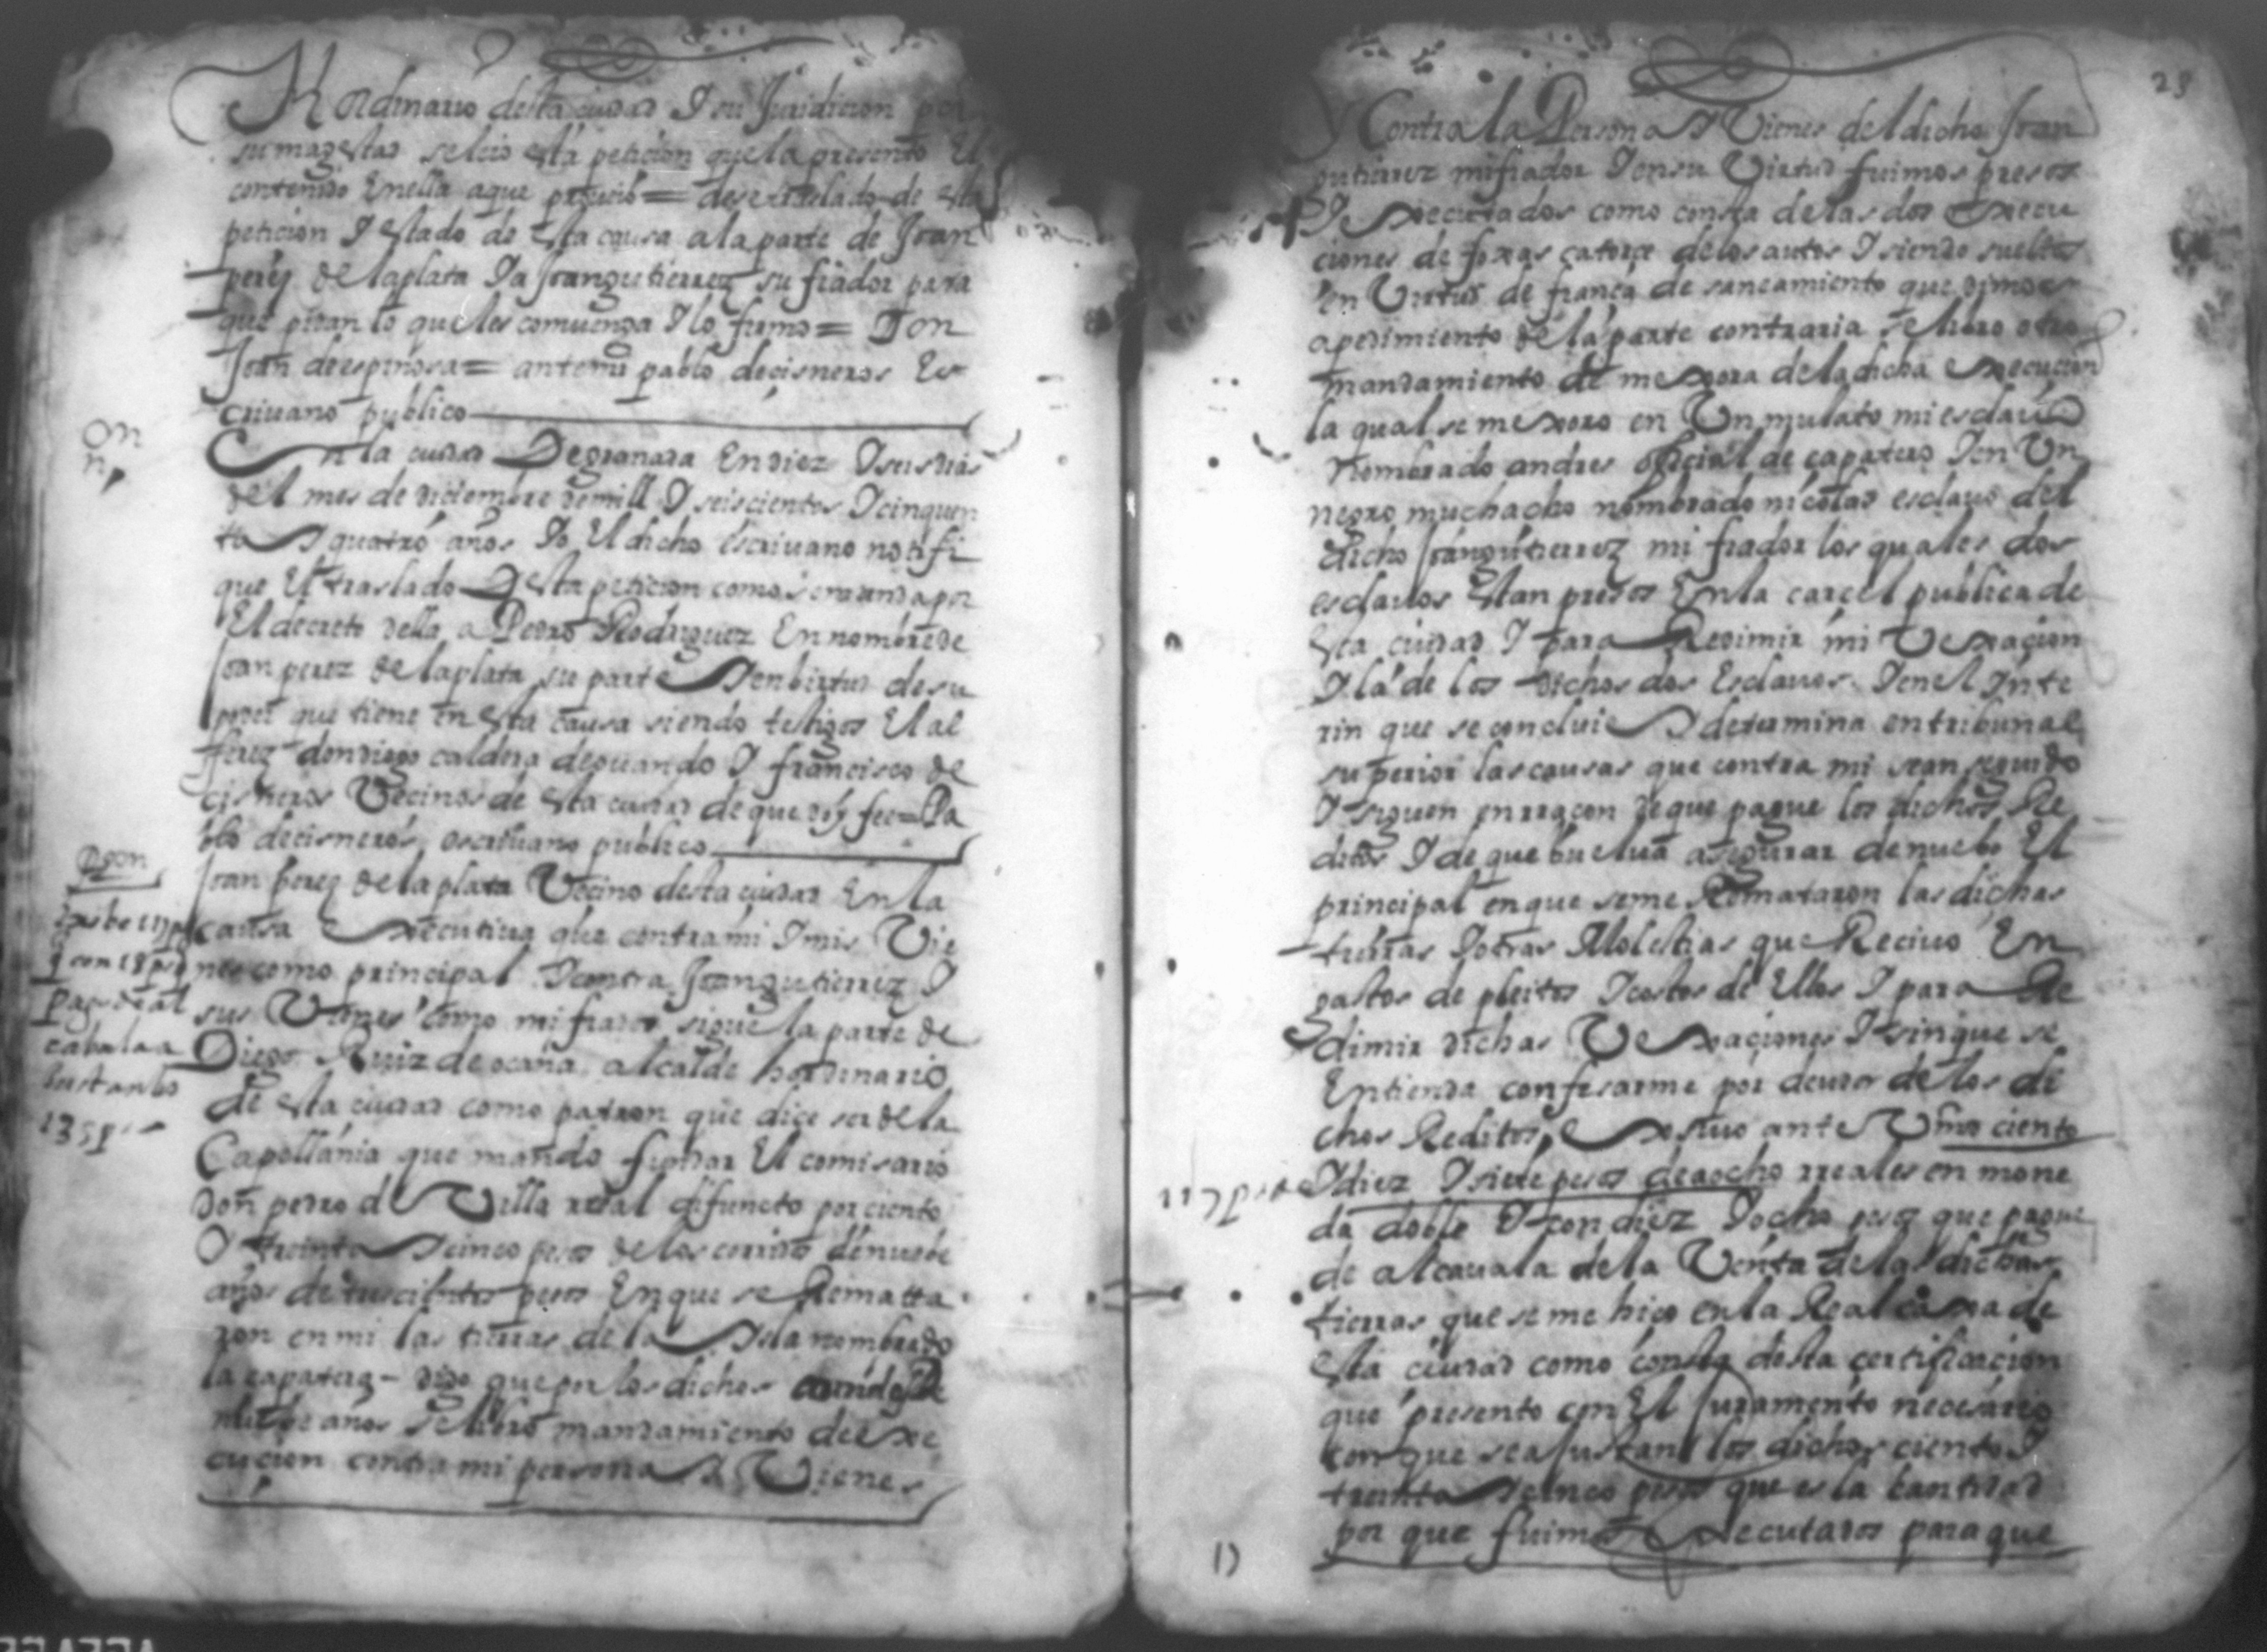 Hordinario desta ciudad I su Juridicion por
su magestad se leio esta peticion que la presento El
contenido En ella a que proveió = dese traslado de esta
peticion I estado de esta causa a la parte de Joan
perez de la plata Ia Joan gutierrez su fiador para
que pidan lo que les comuenga I lo firmo = Don
Joan de espinosa = ante mi pablo de cisneros Es
criuano publico
On
n
En la ciudad De granada En diez I seis dias
del mes de diciembre de mill I seiscientos I cinquen
ta I quatro años Io El dicho escriuano notifi
que El traslado Desta peticion como se manda por
El decreto della a Pedro Rodriguez En nombre de
Joan perez de la plata su parte I en birtud de su
poder que tiene en esta causa siendo testigos El al
ferez don diego caldera de ouando I francisco de
cisneros Vecinos de esta ciudad de que doy fee = Pa
blo de cisneros escriuano publico
Joan perez de la plata Vecino desta ciudad En la
causa Executiua que contra mi I mis Vie
nes como principal I contra Joan gutierrez I
sus Vienes como mi fiador sigue la parte de
Diego Ruiz de ocaña alcalde hordinario
de esta ciudad como patron que dice ser de la
Capellania que mando fundar El comisario
don pedro de Villa rreal difuncto por ciento
I treinta I cinco pesos de los corridos de nuebe
años de trescientos pesos En que se Rematta
ron en mi las tierras de la Isla nombrado
la capatera - digo que por los dichos
nuebe años se libro mandamiento de exe
cucion contra mi persona I Vienes
pagodeal
cabala a
1351
25
Y Contra la Persona I Vienes del dicho Joan
gutierrez mi fiador I en su Virtud fuimos presos
I Executados como consta de las dos Execu
ciones de foxas catorce de los autos I siendo sueltos
en Virtud de fiança de saneamiento que dimos
a pedimiento de la parte contraria se libro otro
mandamiento de mexora de la dicha Execucion
la qual se mexoro en Un mulato mi esclauo
nombrado andres oficial de capatero I en Un
negro muchacho nombrado nicolas esclauo del
dicho Joan gutierrez mi fiador los quales dos
esclauos Estan presos En la carcel publica de
Esta ciudad I para Redimir mi Vexacion
I la de los dichos dos Esclauos I en el Inte
rin que se concluie I determina en tribunal
superior las causas que contra mi se an seguido
I siguen en rraçon de que pague los dichos Re
ditos I de que buelua a segurar de nuebo El
principal en que se me Remataron las dichas
tierras I otras Molestias que Reciuo En
gastos de pleitos I costos de Ellos I para Re
dimir dichas Vexaciones I sin que se
Entienda confesarme por deudor de los di
chos Reditos, Exsiuo ante Vmd ciento
117 pesos
I diez I siete pesos de a ocho rreales en mone
da doble I con diez I ocho pesos que pague
de alcauala de la Venta de las dichas
tierras que se me hiço en la Real caxa de
esta ciudad como consta desta certificacion
que presento con El Juramento necesario
con que se ajustan los dichos ciento I
treinta I cinco pesos que es la cantidad
por que fuimos Executados para que
17